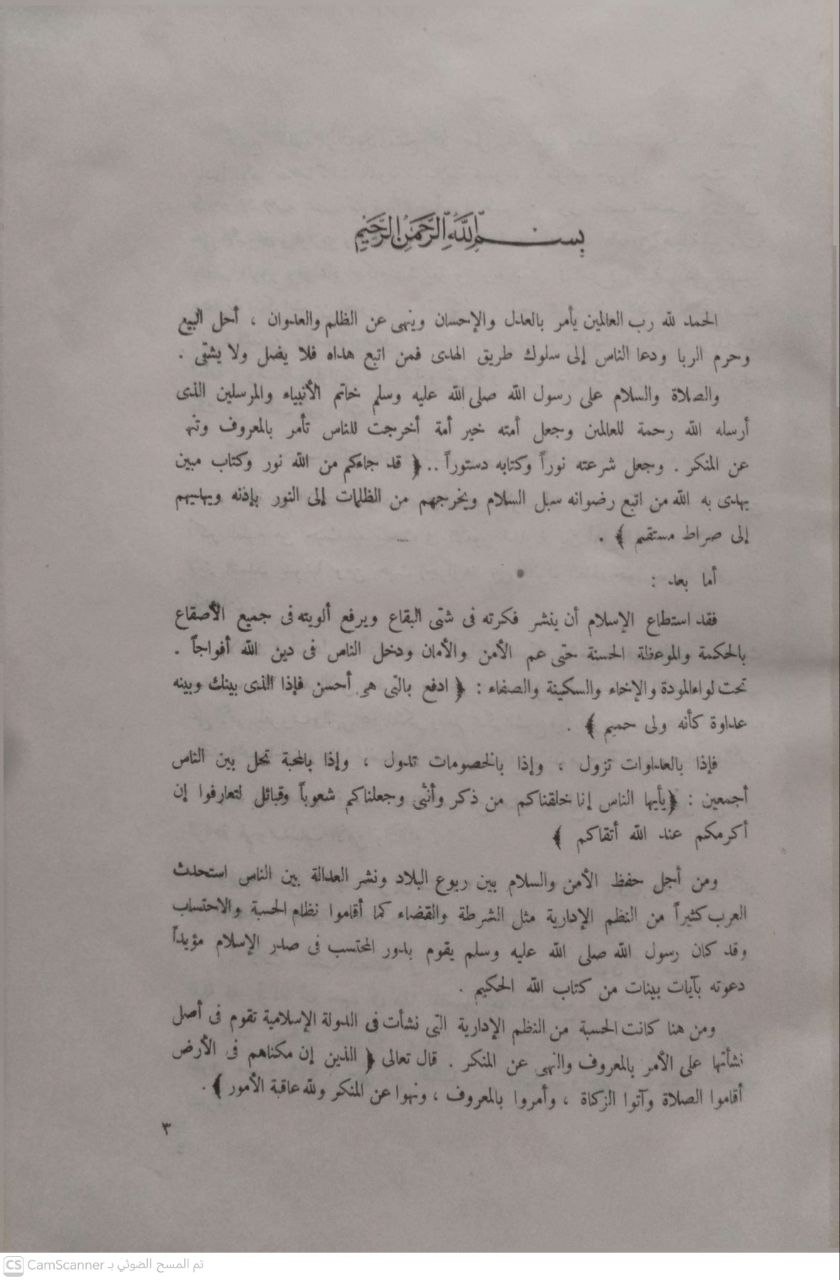 بسم الله الرحمن الرحيم
الحمد لله رب العالمين يأمر بالعدل والإحسان وينهى عن الظلم والعدوان ، أحل البيع
وحرم الربا ودعا الناس إلى سلوك طريق الهدى فمن اتبع هداه فلا يضل ولا يشتى .
والصلاة والسلام على رسول الله صلى الله عليه وسلم خاتم الأنبياء والمرسلين الذى
أرسله الله رحمة للعالمين وجعل أمته خير أمة أخرجت للناس تأمر بالمعروف وتنه
عن المنكر . وجعل شرعته نوراً وكتابه دستوراً .. ﴿ قد جاءكم من الله نور وكتاب مبين
يهدى به الله من اتبع رضوانه سبل السلام ويخرجهم من الظلمات إلى النور بإذنه ويهديهم
إلى صراط مستقيم ﴾ .
أما بعد :
فقد استطاع الإسلام أن ينشر فكرته فى شتى البقاع ويرفع ألويته فى جميع الأصقاع
بالحكمة والموعظة الحسنة حتى عم الأمن والأمان ودخل الناس فى دين الله أفواجاً .
تحت لواء المودة والإخاء والسكينة والصفاء : ﴿ ادفع بالتى هى أحسن فإذا الذى بينك وبينه
عداوة كأنه ولى حميم ﴾ .
فإذا بالعداوات تزول ، وإذا بالخصومات تدول ، وإذا بالمحبة تحل بين الناس
أجمعين : ﴿ يأيها الناس إنا خلقناكم من ذكر وأنثى وجعلناكم شعوباً وقبائل لتعارفوا إن
أكرمكم عند الله أتقاكم ﴾
ومن أجل حفظ الأمن والسلام بين ربوع البلاد ونشر العدالة بين الناس استحدث
العرب كثيراً من النظم الإدارية مثل الشرطة والقضاء كما أقاموا نظام الحسبة والاحتساب
وقد كان رسول الله صلى الله عليه وسلم يقوم بدور المحتسب فى صدر الإسلام مؤيداً
دعوته بآيات بينات من كتاب الله الحكيم .
ومن هنا كانت الحسبة من النظم الإدارية التى نشأت فى الدولة الإسلامية تقوم فى أصل
نشأتها على الأمر بالمعروف والنهى عن المنكر . قال تعالى ﴿ الذين إن مكناهم فى الأرض
أقاموا الصلاة وآتوا الزكاة ، وأمروا بالمعروف ، ونهوا عن المنكر ولله عاقبة الأمور ﴾ .
٣
CS CamScanner تم المسح الضوئي بـ